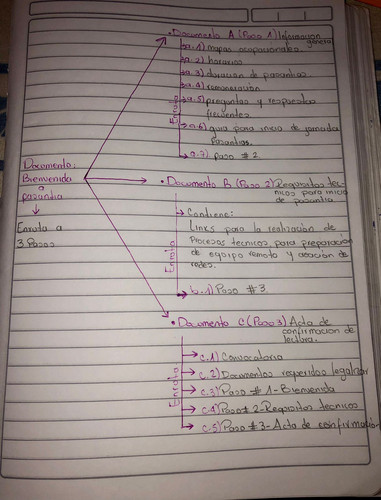 • Documento A (Paso 1) Información general
a.1) mapas ocupacionales.
a.2) horarios
a.3) duración de pasantias.
a.4) remuneración
a.5) preguntas y respuestas
frecuentes
a.6) guia para inicio de
pasantias.
a.7) paso #2
Enruta
Documento:
Bienvenida
a
pasantia
↓
Enruta a
3 Pasos
• Documento B (Paso 2) Requisitos tec-
nicos para inicio
de pasantia
Contiene:
Links para la realización de
Procesos tecnicos, para preparación
de equipo remoto y de
redes.
b.1) Paso #3
Enruta
• Documento C (Paso 3) Acta de
confirmación de
lectura.
c.1) Convocatoria
c.2) Documentos requeridos legalizar
c.3) Paso #1-Bienvenida
c.4) Paso #2-Requisitos tecnicos
c.5) Paso #3-Acta de confirmación
Enruta